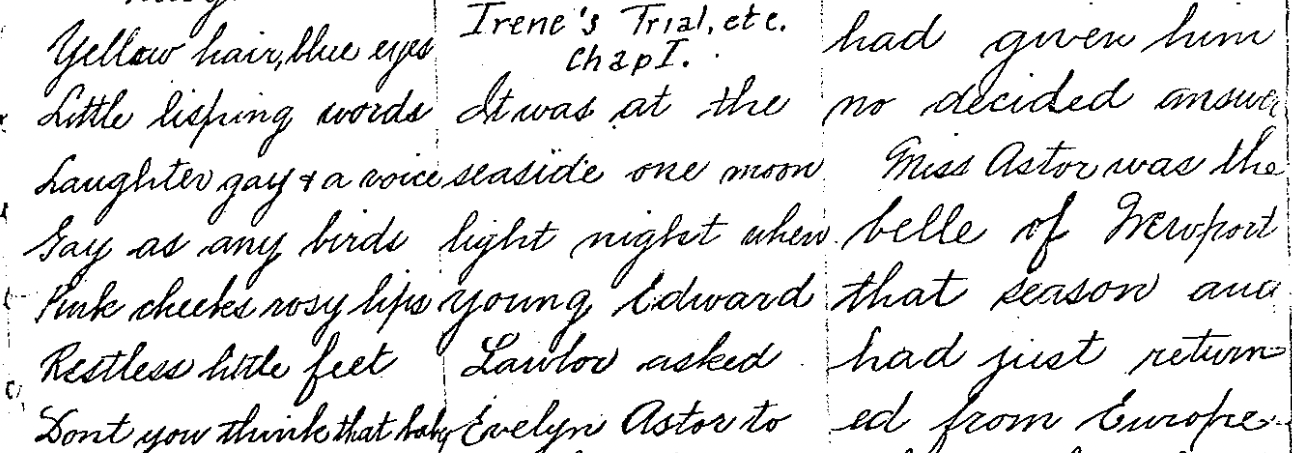 Yellow hair, blue eyes
Little lisping words
Laughter gay & a voice
Gay as any birds
Pink cheeks rosy lips
Restless little feet
Dont you think that baby
Irene's Trial, etc.
Chap I.
It was at the
seaside one moon
light night when
young Edward
Lawlor asked
Evelyn Astor to
had given him
no decided answe
Miss Astor was the
belle of Newport
that season and
had just return
ed from Europe